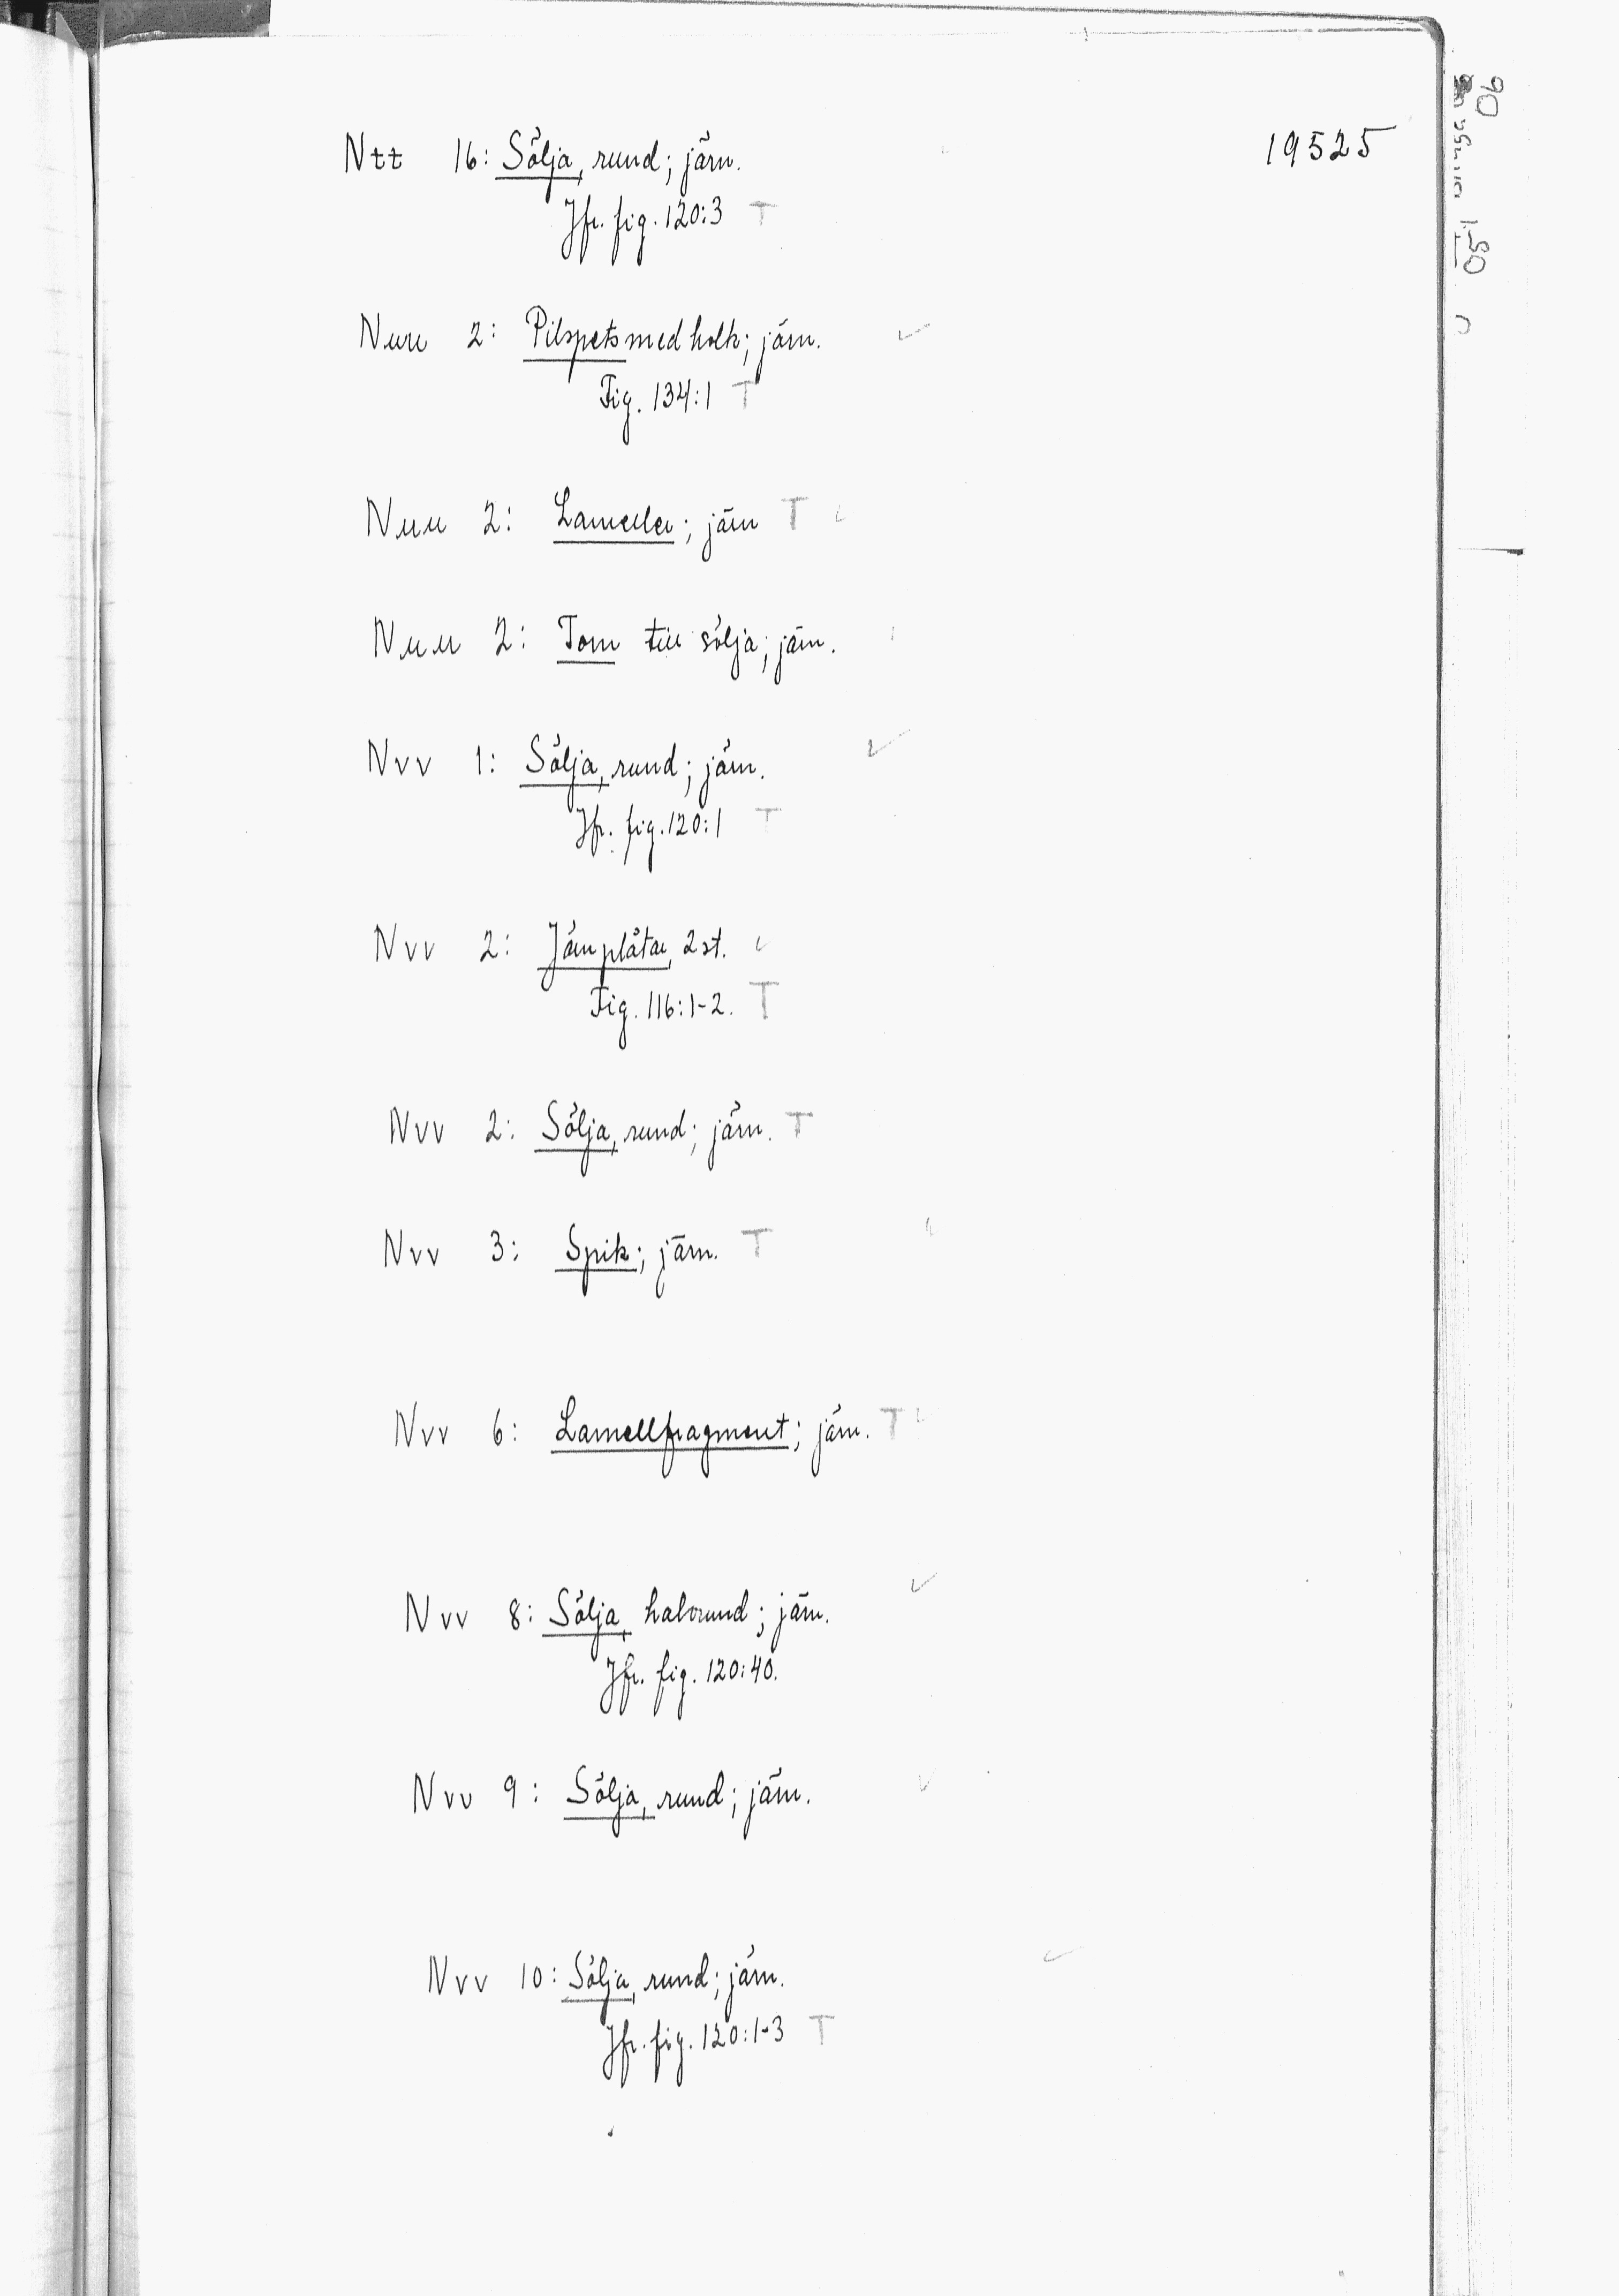 19525
Ntt 16: Sölja, rund; järn.
Jfr. fig. 120:3 T
Nuu 2: Pilspets med holk; järn.
Fig. 134:1 T
Nuu 2: Lameller; järn T
Nuu 2: Torn till sölja; järn.
Nvv 1: Sölja, rund; järn.
Jfr. fig. 120:1 T
Nvv 2: Järnplåtar, 2 st.
Fig. 116:1-2. T
Nvv 2: Sölja, rund; järn. T
Nvv 3: Spik; järn. T
Nvv 6: Lamellfragment; järn. T
Nvv 8: Sölja, halvrund; järn.
Jfr. fig. 120:40.
Nvv 9: Sölja, rund; järn.
Nvv 10: Sölja, rund; järn.
Jfr. fig. 120:1-3 T